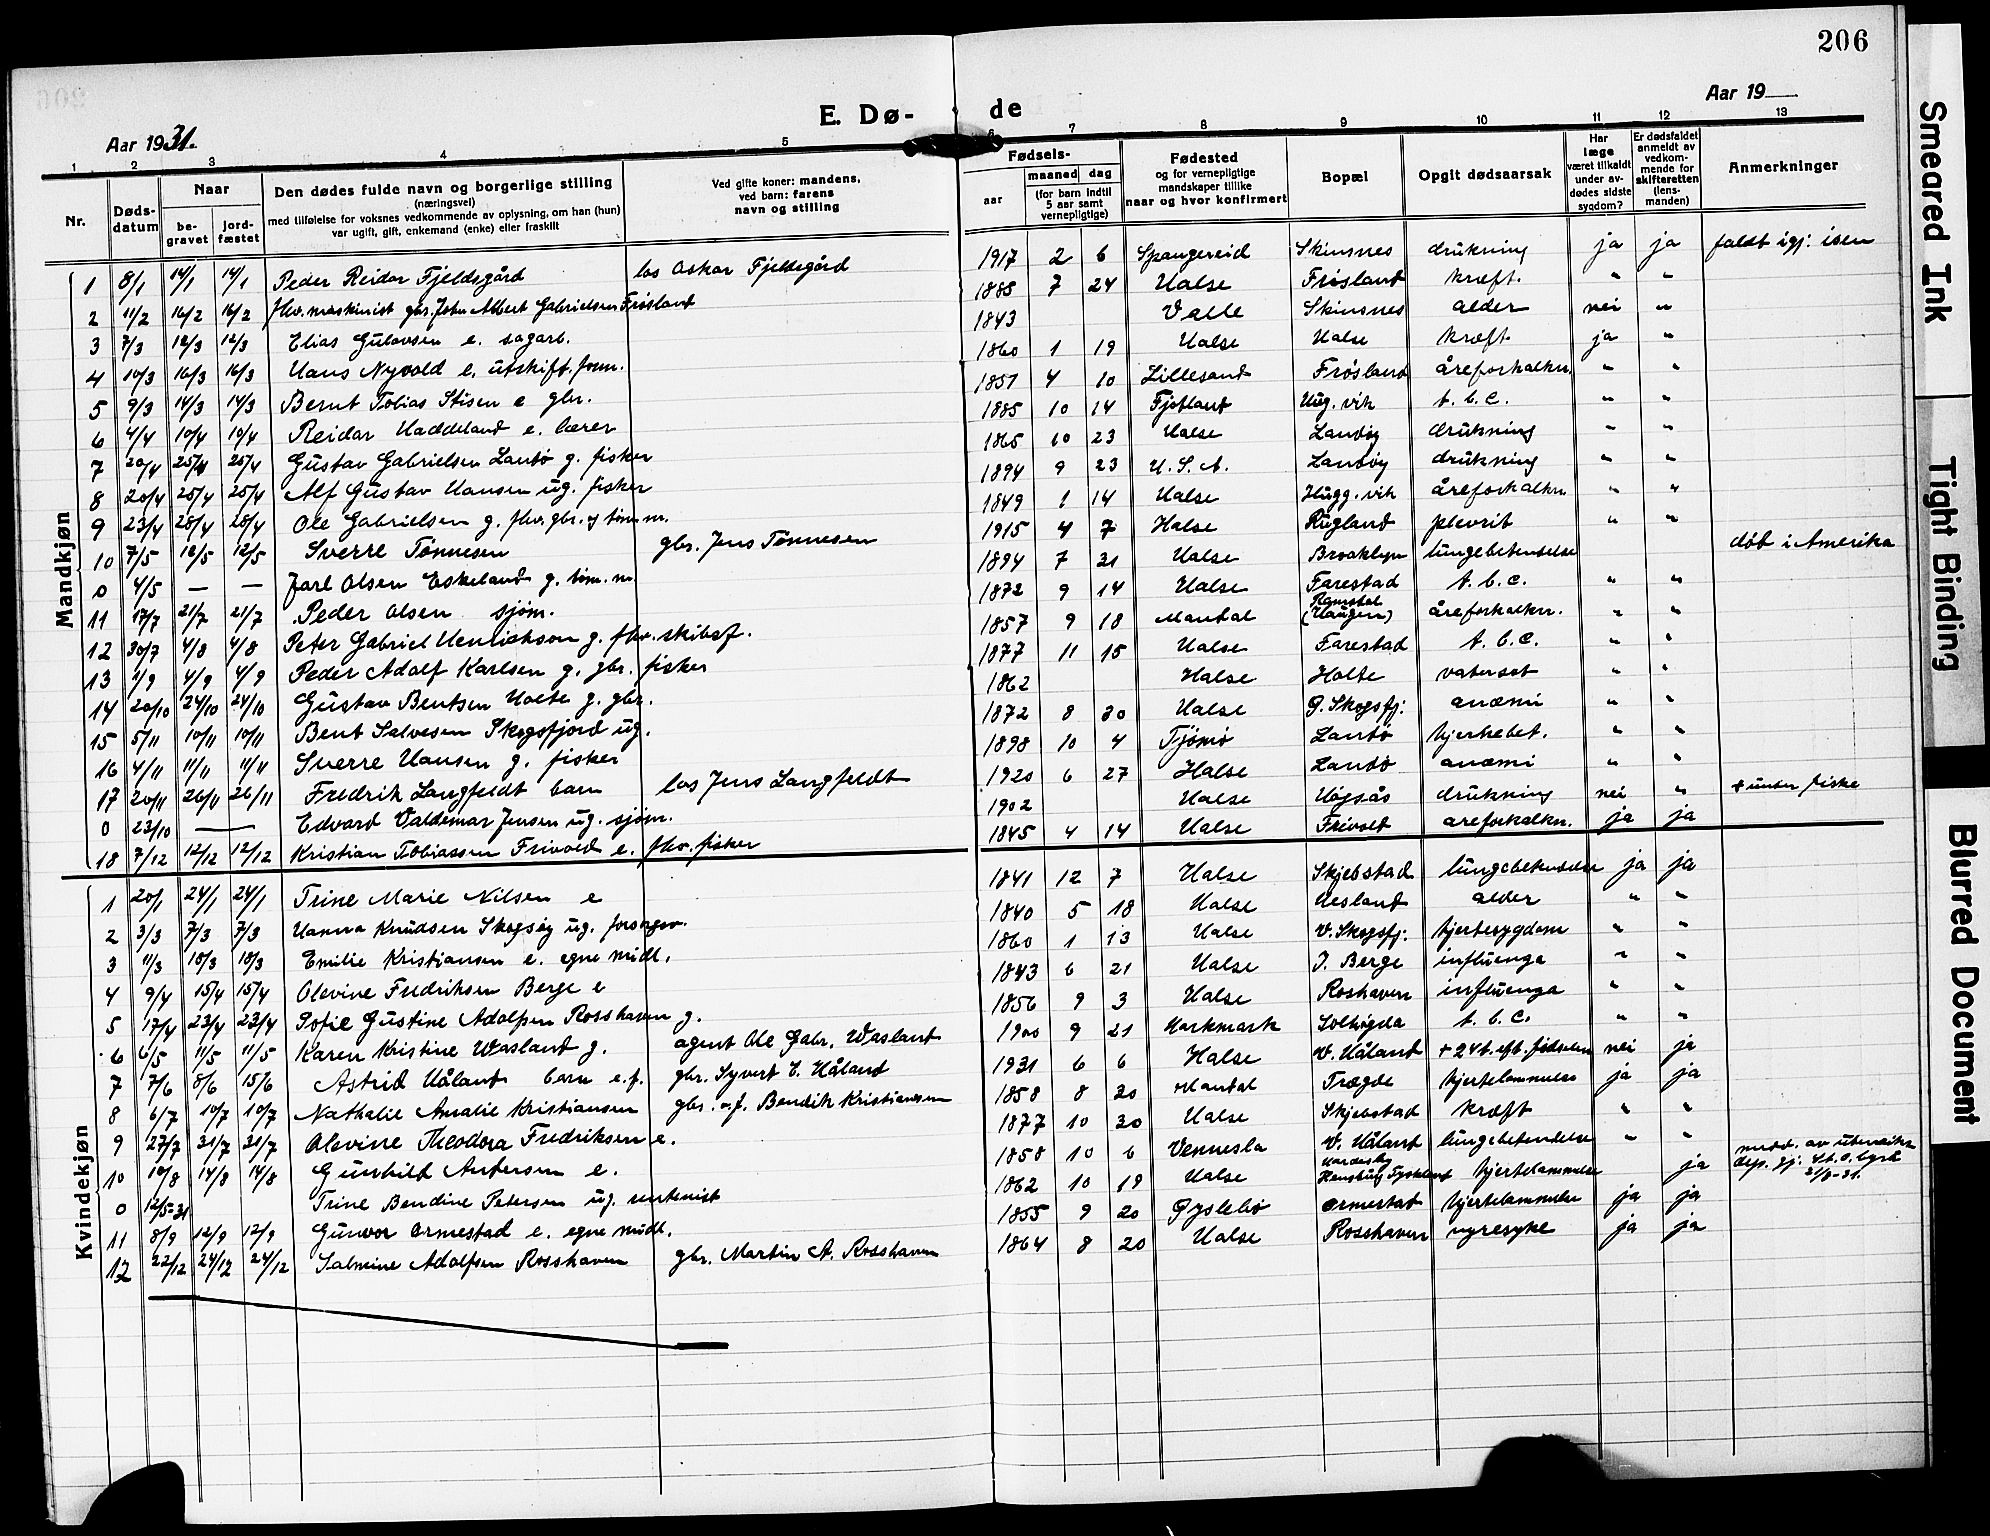 206
Aar 1931.
E. Dø-
de
Aar 19
1 2 3 4 5 6 7 8 9 10 11 12 13
Nr. Døds-datum Naar be-gravet jord-fæstet
Den dødes fulde navn og borgerlige stilling (næringsvei) med tilføielse for voksnes vedkommende av oplysning, om han (hun) var ugift, gift, enkemand (enke) eller fraskilt
Ved gifte koner: mandens, ved barn: farens navn og stilling
Fødsels- aar maaned dag (for barn indtil 5 aar samt vernepligtige)
Fødested og for vernepligtige mandskaper tillike naar og hvor konfirmert
Bopæl
Opgit dødsaarsak
Har læge været tilkaldt under av-dødes sidste sygdom?
Er dødsfaldet anmeldt av vedkom-mende for skifteretten (lens-manden)
Anmerkninger
Mandkjøn
1 8/1 14/1 14/1 Peder Reidar Fjeldsgård los Oskar Fjeldsgård 1917 2 6 Spangereid Skinsnes drukning ja ja faldt igj. isen
2 11/2 16/2 16/2 fhv. maskinist gbr. John Albert Gabrielsen Frøsland 1888 7 24 Halse Frøsland kræft. " "
3 7/3 12/3 12/3 Elias Gulovsen e. sagarb. 1843 Valle Skinsnes alder nei "
4 10/3 16/3 16/3 Hans Nyvold e. utskift. form. 1860 1 19 Halse Halse kræft. ja "
5 9/3 14/3 14/3 Bernt Tobias Stisen e gbr. 1851 4 10 Lillesand Frøsland åreforkalkn. " "
6 4/4 10/4 10/4 Reidar Haddeland e. lærer 1885 10 14 Fjotland Hug. vik t. b. c. " "
7 20/4 25/4 25/4 Gustav Gabrielsen Landø g. fisker 1865 10 23 Halse Landøy drukning " "
8 20/4 25/4 25/4 Alf Gustav Hansen ug. fisker 1894 9 23 U. S. A. Landøy drukning " "
9 23/4 28/4 28/4 Ole Gabrielsen g. fhv. gbr. og tøm m. 1849 1 14 Halse Hugg. vik åreforkalkn. " "
10 7/5 12/5 12/5 Sverre Tønnesen gbr. Jens Tønnesen 1915 4 7 Halse Rugland plevrit " "
0 4/5 — — Jarl Olsen Eskeland g. tøm. m 1894 7 21 Halse Brooklyn lungebetendelse død i Amerika
11 17/7 21/7 21/7 Peder Olsen sjøm. 1872 9 14 Halse Farestad t. b. c. " "
12 30/7 4/8 4/8 Peter Gabriel Henrickson g. fhv. skibsf. 1857 9 18 Mandal (Haugen) åreforkalkn. " "
13 1/9 4/9 4/9 Peder Adolf Karlsen g. gbr. fisker 1877 11 15 Halse Farestad t. b. c. " "
14 20/10 24/10 24/10 Gustav Bentsen Holte g. gbr. 1862 Halse Holte vatersot " "
15 5/11 10/11 10/11 Bent Salvesen Skogsfjord ug. 1872 8 30 Halse G. Skogsfj. anæmi " "
16 4/11 11/11 11/11 Sverre Hansen g. fisker 1898 10 4 Tjømø Landø hjertebet. " "
17 20/11 26/11 26/11 Fredrik Langfeldt barn los Jens Langfeldt 1920 6 27 Halse Landø anæmi " "
0 23/10 — Edvard Valdemar Jensen ug. sjøm. 1902 Halse Høgsås drukning nei " + under fiske
18 7/12 12/12 12/12 Kristian Tobiassen Frivold e. fhv. fisker 1845 4 14 Halse Frivold areforkalkn. ja ja
Kvindekjøn
1 20/1 24/1 24/1 Trine Marie Nilsen e 1841 12 7 Halse Skjebstad lungebetendelse ja ja
2 3/3 7/3 7/3 Hanna Knudsen Skogsøy ug. forsørgev. 1840 5 18 Halse Uesland alder " "
3 11/3 18/3 18/3 Emilie Kristiansen e. egne midl. 1860 1 13 Halse V. Skogsfj. hjertesygdom " "
4 9/4 15/4 15/4 Olevine Fredriksen Berge e 1843 6 21 Halse I. Berge influenga " "
5 17/4 23/4 23/4 Sofie Gustine Adolfsen Rosshaven g. 1856 9 3 Halse Roshaven influenga " "
6 6/5 11/5 11/5 Karen Kristine Wasland g. agent Ole Gabr. Wasland 1900 9 21 Markmark Solhøgda t. b. c. " "
7 7/6 8/6 15/6 Astrid Håland barn e. f. gbr. Syvert T. Håland 1931 6 6 Halse V. Håland + 24 t. eft. fødselen nei ja
8 6/7 10/7 10/7 Nathalie Amalie Kristiansen gbr. o. f. Bendik Kristiansen 1858 8 20 Mandal Trægde hjertelammelse ja ja
9 27/7 31/7 31/7 Olevine Theodora Fredriksen e. 1877 10 30 Halse Skjebstad kræft " "
10 10/8 14/8 14/8 Gunhild Andersen e. 1858 10 6 Vennesla V. Håland lungebetendelse " "
0 12/5-31 Trine Bendine Petersen ug. rentenist 1862 10 19 Halse Hardesby Flensburg Tyskland hjertelammelse ja medd. av utenriks dep. gj. 21/8-31.
11 8/9 12/9 12/9 Gunvor Ormestad e. egne midl. 1855 9 20 Øyslebø Ormestad hjertelammelse ja ja
12 22/12 24/12 24/12 Salmine Adolfsen Rosshaven gbr. Martin A. Rosshaven 1864 8 20 Halse Rosshaven nyresyke ja ja
Smeared Ink
Tight Binding
Blurred Document